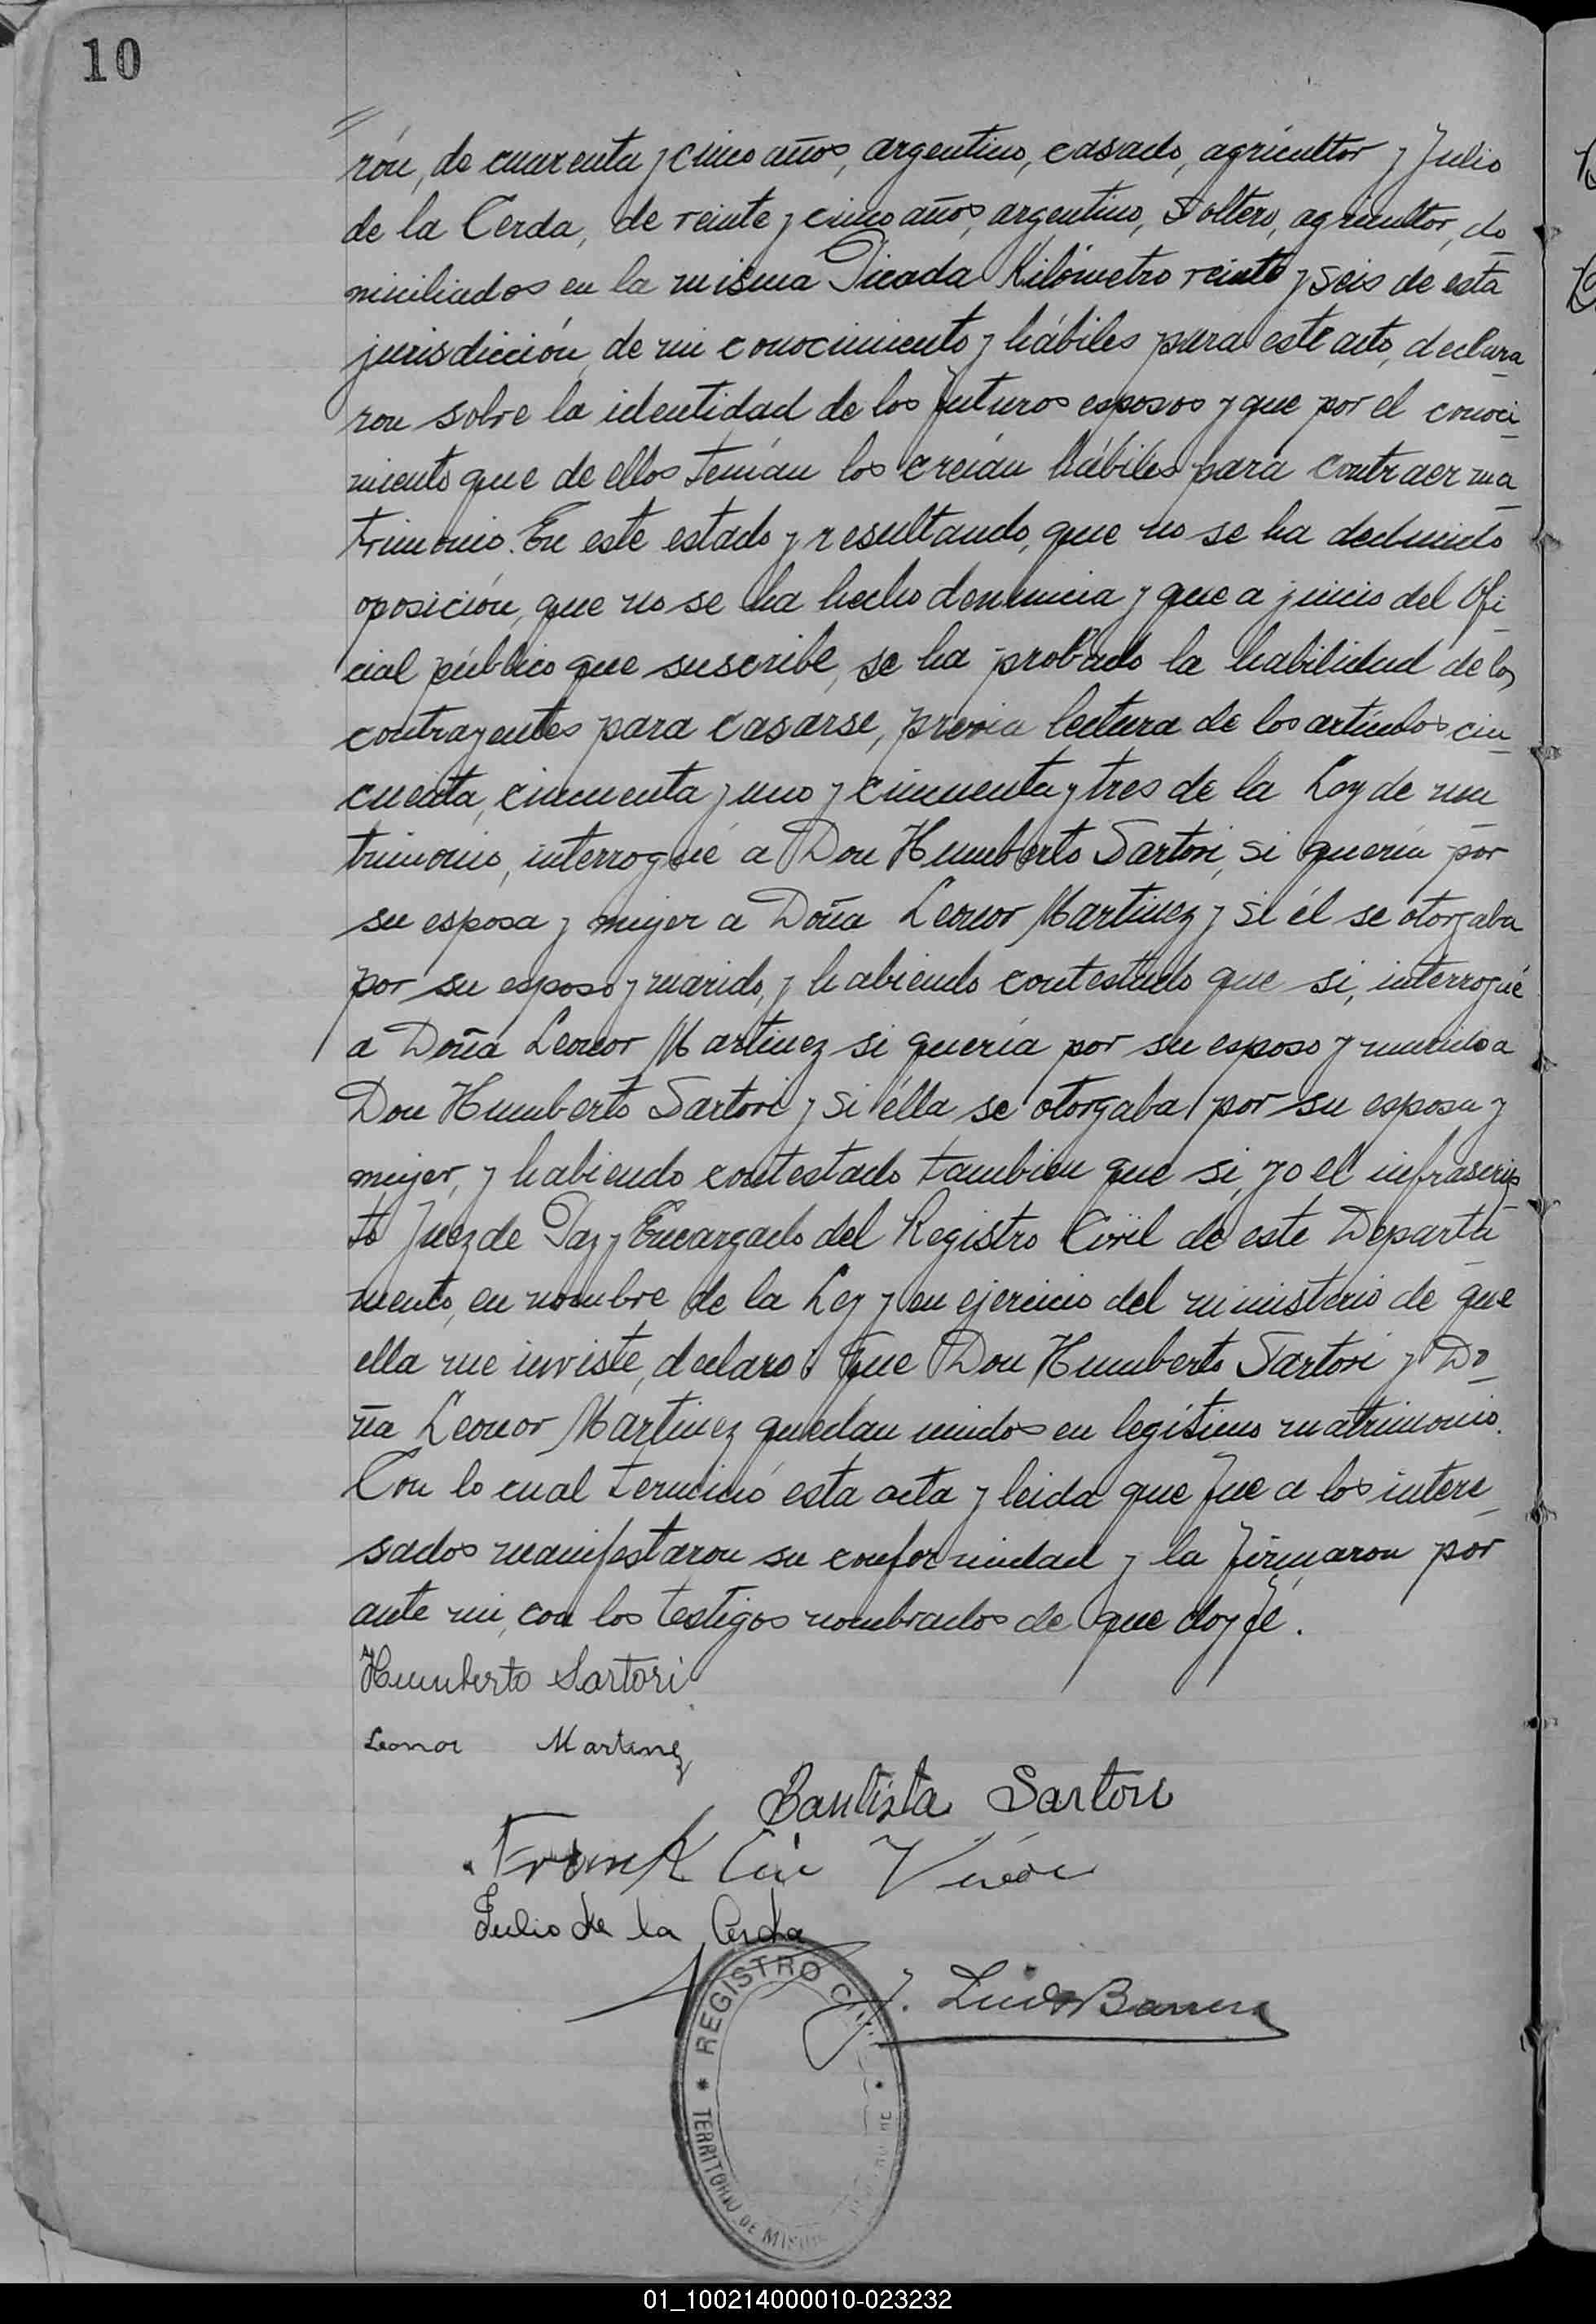 10
rón, de cuarenta y cinco años, argentino, casado, agricultor y Julio
de la Cerda, de veinte y cinco años, argentino, Soltero, agricultor, do_
miciliados en la misma Picada Kilómetro veinte y seis de esta
jurisdicción, de mi conocimiento y hábiles para este acto, declara_
ron sobre la identidad de los futuros esposos y que por el conoci_
miento que de ellos tenían los creían hábiles para contraer ma_
trimonio. En este estado y resultando, que no se ha deducido
oposición, que no se ha hecho denuncia y que a juicio del Ofi_
cial público que suscribe, se ha probado la habilidad de los
contrayentes para casarse, previa lectura de los artículos cin_
cuenta, cincuenta y uno y cincuenta y tres de la Ley de ma_
trimonio, interrogué a Don Humberto Sartori, si quería por
su esposa y mujer a Doña Leonor Martinez y si él se otorgaba
por su esposo y marido, y habiendo contestado que si, interrogué
a Doña Leonor Martinez si quería por su esposo y marido a
Don Humberto Sartori y si élla se otorgaba por su esposa y
mujer, y habiendo contestado tambien que si, yo el infrascrip_
to Juez de Paz y Encargado del Registro Civil de este Departa_
mento, en nombre de la Ley y en ejercicio del ministerio de que
ella me inviste, declaro: Que Don Humberto Sartori y Do_
ña Leonor Martinez quedan unidos en legítimo matrimonio.
Con lo cual terminó esta acta y leida que fue a los intere_
sados manifestaron su conformidad y la firmaron por
ante mi, con los testigos nombrados de que doy fé.
Humberto Sartori
Leonor Martinez
Bautista Sartori
Julio de la Cerda
REGISTRO CIVIL
TERRITORIO DE MISIONES
01_100214000010-023232